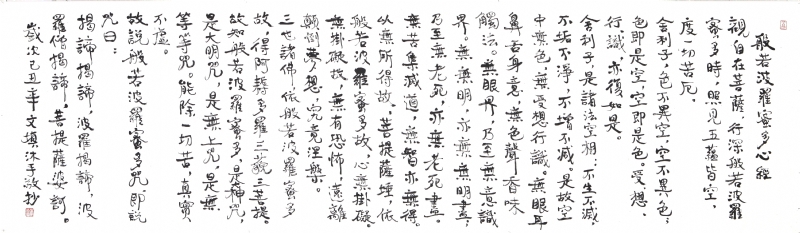 般若波羅蜜多心經
觀自在菩薩,行深般若波羅
蜜多時,照見五蘊皆空,
度一切苦厄。
舍利子,色不異空,空不異色,
色即是空,空即是色。受,想,
行,識,亦復如是。
舍利子,是諸法空相,不生不滅,
不垢不淨,不增不減,是故空
中無色,無受想行識。無眼耳
鼻舌身意,無色聲香味
觸法。無眼界,乃至無意識
界。無無明,亦無無明盡。
乃至無老死,亦無老死盡。
無苦集滅道,無智亦無得。
以無所得故,菩提薩埵,依
般若波羅蜜多故,心無掛礙。
無掛礙故,無有恐怖,遠離
顛倒夢想,究竟涅槃。
三世諸佛,依般若波羅蜜多
故,得阿耨多羅三藐三菩提。
故知般若波羅蜜多,是神咒,
是大明咒,是無上咒,是無
等等咒。能除一切苦,真實
不虛。
故說般若波羅蜜多咒,即說
咒曰:
揭諦揭諦,波羅揭諦,波
羅僧揭諦,菩提薩婆訶。
歲次己丑年文填沐手敬抄